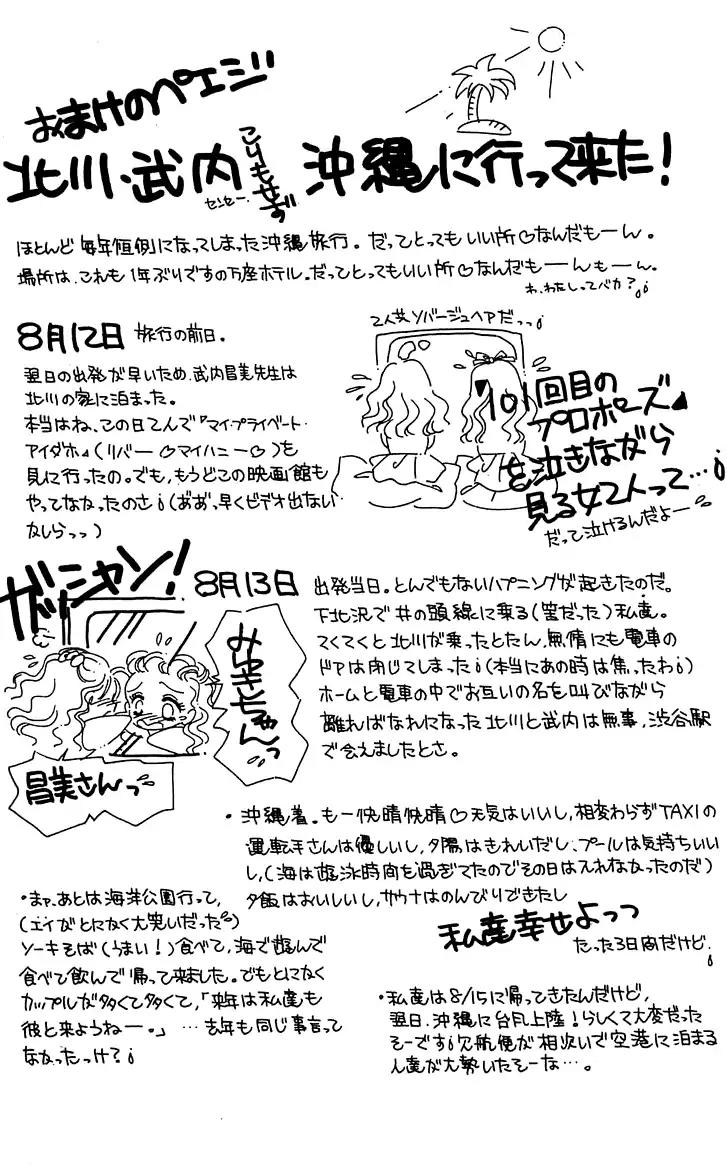 おまけのペエジ
北川・武内 こりもせず 沖縄に行って来た!
センセー
ほとんど毎年恒例になってしまった沖縄旅行。だってとってもいい所♡なんだもーん。
場所は、これも1年ぶりですの万座ホテル。だってとってもいい所♡なんだもーんもーん。
わ、わたしってバカ?
8月12日 旅行の前日。
翌日の出発が早いため、武内昌美先生は
北川の家に泊まった。
本当はね、この日てんで『マイ・プライベート・
アイダホ』(リバー♡マイハニー♡)を
見に行ったの。でも、もうどこの映画館も
やってなかったのさ!(ああ、早くビデオ出ない
かしらっっ)
2人共ソバージュヘアだっっ!
『101回目の
プロポーズ』
を泣きながら
見る女2人って…!
だって泣けるんだよー
ガシャン!
8月13日
出発当日。とんでもないハプニングが起きたのだ。
下北沢で井の頭線に乗る(筈だった)私達。
てくてくと北川が乗ったとたん、無情にも電車の
ドアは閉じてしまった!(本当にあの時は焦ったわ!)
ホームと電車の中でお互いの名を叫びながら
離ればなれになった北川と武内は無事、渋谷駅
で会えましたとさ。
みゆきちゃんっ
昌美さんっ
・沖縄着。もー快晴快晴♡天気はいいし、相変わらずTAXIの
運転手さんは優しいし、夕陽はきれいだし、プールは気持ちいい
し、(海は遊泳時間を過ぎてたのでその日は入れなかったのだ)
夕飯はおいしいし、サウナはのんびりできたし
私達幸せよっっ
たった3日間だけど。
・まァ、あとは海洋公園行って、
(エイがとにかく大笑いだった)
ソーキそば(うまい!)食べて、海で遊んで
食べて飲んで帰って来ました。でもとにかく
カップルが多くて多くて、「来年は私達も
彼と来ようねー。」…去年も同じ事言って
なかったっけ?!
・私達は8/15に帰ってきたんだけど、
翌日、沖縄に台風上陸!らしくて大変だった
そーです!欠航便が相次いで空港に泊まる
人達が大勢いたそーな…。